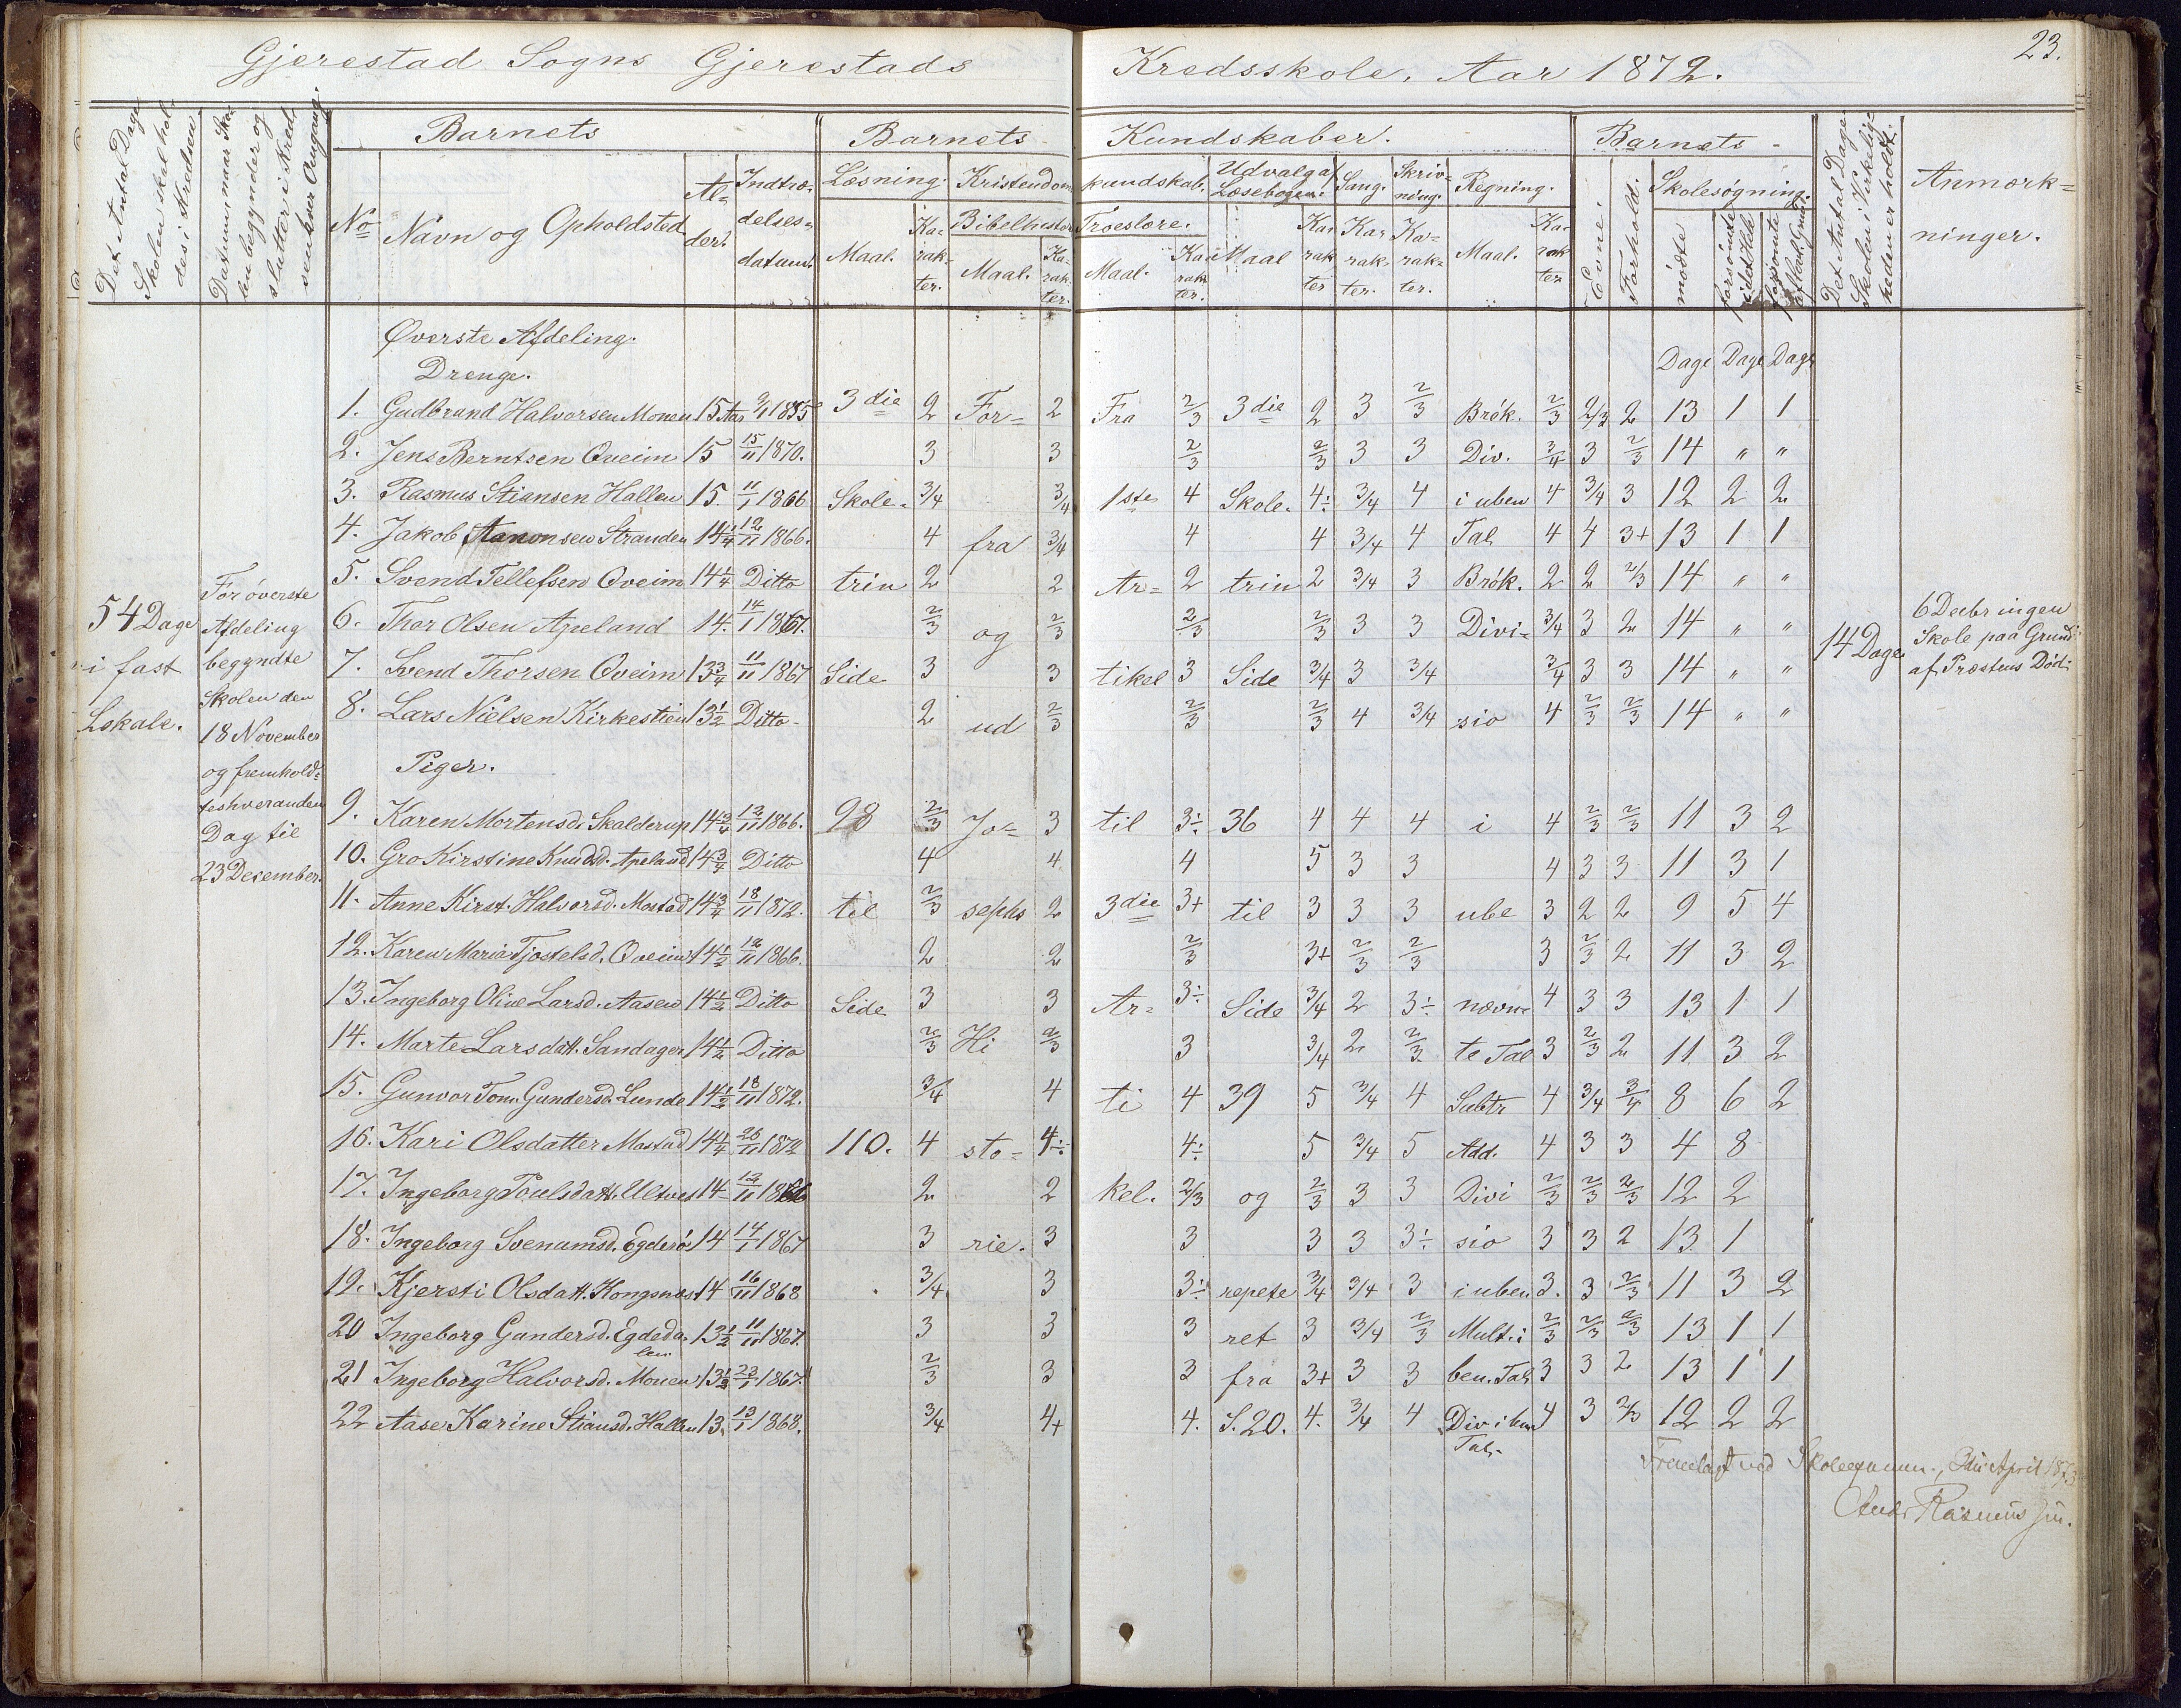 23.
Gjerestad Sogns Gjerestads Kredsskole. Aar 1872.
Det Antal Dage Skolen skal holdes i Kredsen
Datum, naar Skolen begynder og slutter i Kreds
Barnets
Barnets Kundskaber.
Barnets
Det Antal Dage Skolen i Virkeligheden er holdt.
Anmærkninger.
No Navn og Opholdsted Alder. Indtrædelsesdatum.
Læsning. Kristendomskundskab. Udvalg af Læsebogen. Sang. Skrivning. Regning. Evne. Forhold. Skolesøgning.
Maal. Karakter. Bibelhistorie Maal. Karakter. Troeslære. Maal. Karakter. Maal Karakter Karakter. Karakter. Maal. Karakter mødte forsømte i det Hele forsømte af Grund
Øverste Afdeling.
Drenge.
Dage Dage Dage
1. Gudbrand Halvorsen Monen 15 Aar 3die 2 For- 2 Fra 2/3 3die 2 3 2/3 Brök. 2/3 2/3 2 13 1 1
2. Jens Berntsen Qveim 15 15/11 1870. 3 3 2/3 2/3 3 3 Div. 3/4 3 2/3 14 " "
3. Rasmus Stiansen Hallen 15. 11/1 1866 Skole- 3/4 3/4 1ste 4 Skole- 4÷ 3/4 4 i uben 4 3/4 3 12 2 2
4. Jakob Aanonsen Stranden 14 1/4 12/11 1866. 4 fra 3/4 4 4 3/4 4 Tal 4 4 3+ 13 1 1
5. Svend Tellefsen Qveim 14 1/4 Ditto trin 2 2 Ar- 2 trin 2 3/4 3 Brök. 2 2 2/3 14 " "
6. Thor Olsen Apeland 14. 14/1 1867. 2/3 og 2/3 2/3 2/3 3 3 Divi- 3/4 3 2 14 " "
7. Svend Thorsen Qveim 13 3/4 11/11 1867 Side 3 3 tikel 3 Side 3/4 3 3/4 3/4 3 3 14 " "
8. Lars Nielsen Kirkestien 13 1/2 Ditto 2 ud 2/3 2/3 2/3 4 3/4 sio 4 2/3 2/3 14 " "
54 Dage
i fast
Lskole.
For överste
Afdeling
begyndte
Skolen den
18 November
og fremhold-
tes hveranden
Dag til
23 December.
14 Dage
6 Decbr ingen
Skole paa Grund
af Præstens Död:
Piger.
9. Karen Mortensd. Skalderup 14 3/4 12/11 1866. 98 2/3 Jo- 3 til 3÷ 36 4 4 4 i 4 2/3 2/3 11 3 2
10. Gro Kirstine Knudsd. Apeland 14 3/4 Ditto 4 4 4 5 3 3 4 3 3 11 3 1
11. Anne Kirst. Halvorsd. Mostad 14 3/4 18/11 1872. til 2/3 sephs 2 3die 3+ til 3 3 3 ube 3 2 2 9 5 4
12. Karen Maria Tjostelsd. Qveim 14 1/2 12/11 1866. 2 2 2/3 3+ 2/3 2/3 3 2/3 2 11 3 2
13. Ingeborg Oline Larsd. Aasen 14 1/2 Ditto Side 3 3 Ar- 3÷ Side 3/4 2 3÷ nævn- 4 3 3 13 1 1
14. Marte Larsdatt. Sandager 14 1/2 Ditto 2/3 Hi 2/3 3 3/4 2 2/3 te Tal 3 2/3 2 11 3 2
15. Gunvor Tom. Gundersd. Lunde 14 1/2 18/11 1872. 3/4 4 ti 4 39 5 3/4 4 Subtr 4 3/4 3/4 8 6 2
16. Kari Olsdatter Mostad 14 1/4 26/11 1872 110. 4 sto- 4÷ 4÷ 5 3/4 5 Add. 4 3 3 4 8
17. Ingeborg Poulsdatt. Ulvet 14 12/11 1866 2 2 kel. 2/3 og 2/3 3 3 Divi 2/3 2/3 2/3 12 2
18. Ingeborg Svenumsd. Egderö 14 14/1 1867 3 rie. 3 3 3 3 3÷ sio 3 3 2 13 1
19. Kjersti Olsdatt. Kongsnæs 14 16/11 1868 3/4 3 3÷ repete 3/4 3/4 3 i uben 3. 3 2/3 11 3 2
20 Ingeborg Gundersd. Egdeda- len 13 1/2 11/11 1867. 3 3 3 ret 3 3/4 2/3 Mult. i 2/3 2/3 2/3 13 1 1
21 Ingeborg Halvorsd. Monen 13 1/2 23/1 1867. 2/3 3 3 fra 3+ 3 3 ben. Tal 3 3 2 13 1 1
22 Aase Karine Stiansd. Hallen 13. 13/1 1868. 3/4 4+ 4. S. 20. 4. 3/4 4 Div i ben 4 3 2/3 12 2 2
Tal.
Fremlagt ved Skoleexamen, April 1873
Rasmus